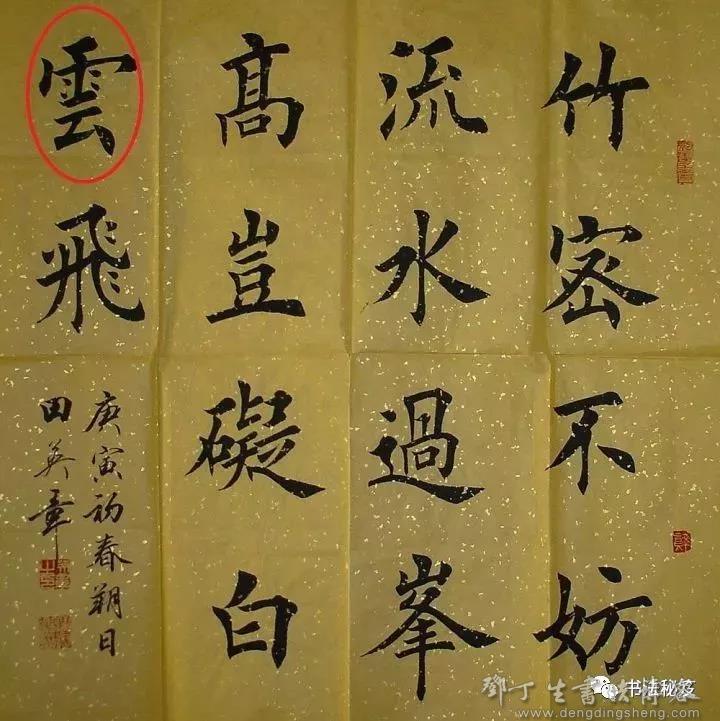 竹密不妨
流水過峯
高豈礙白
雲飛
庚寅初春朔日
田英章
书法秘笈
鄧丁生書法博客
www.dengdingsheng.com